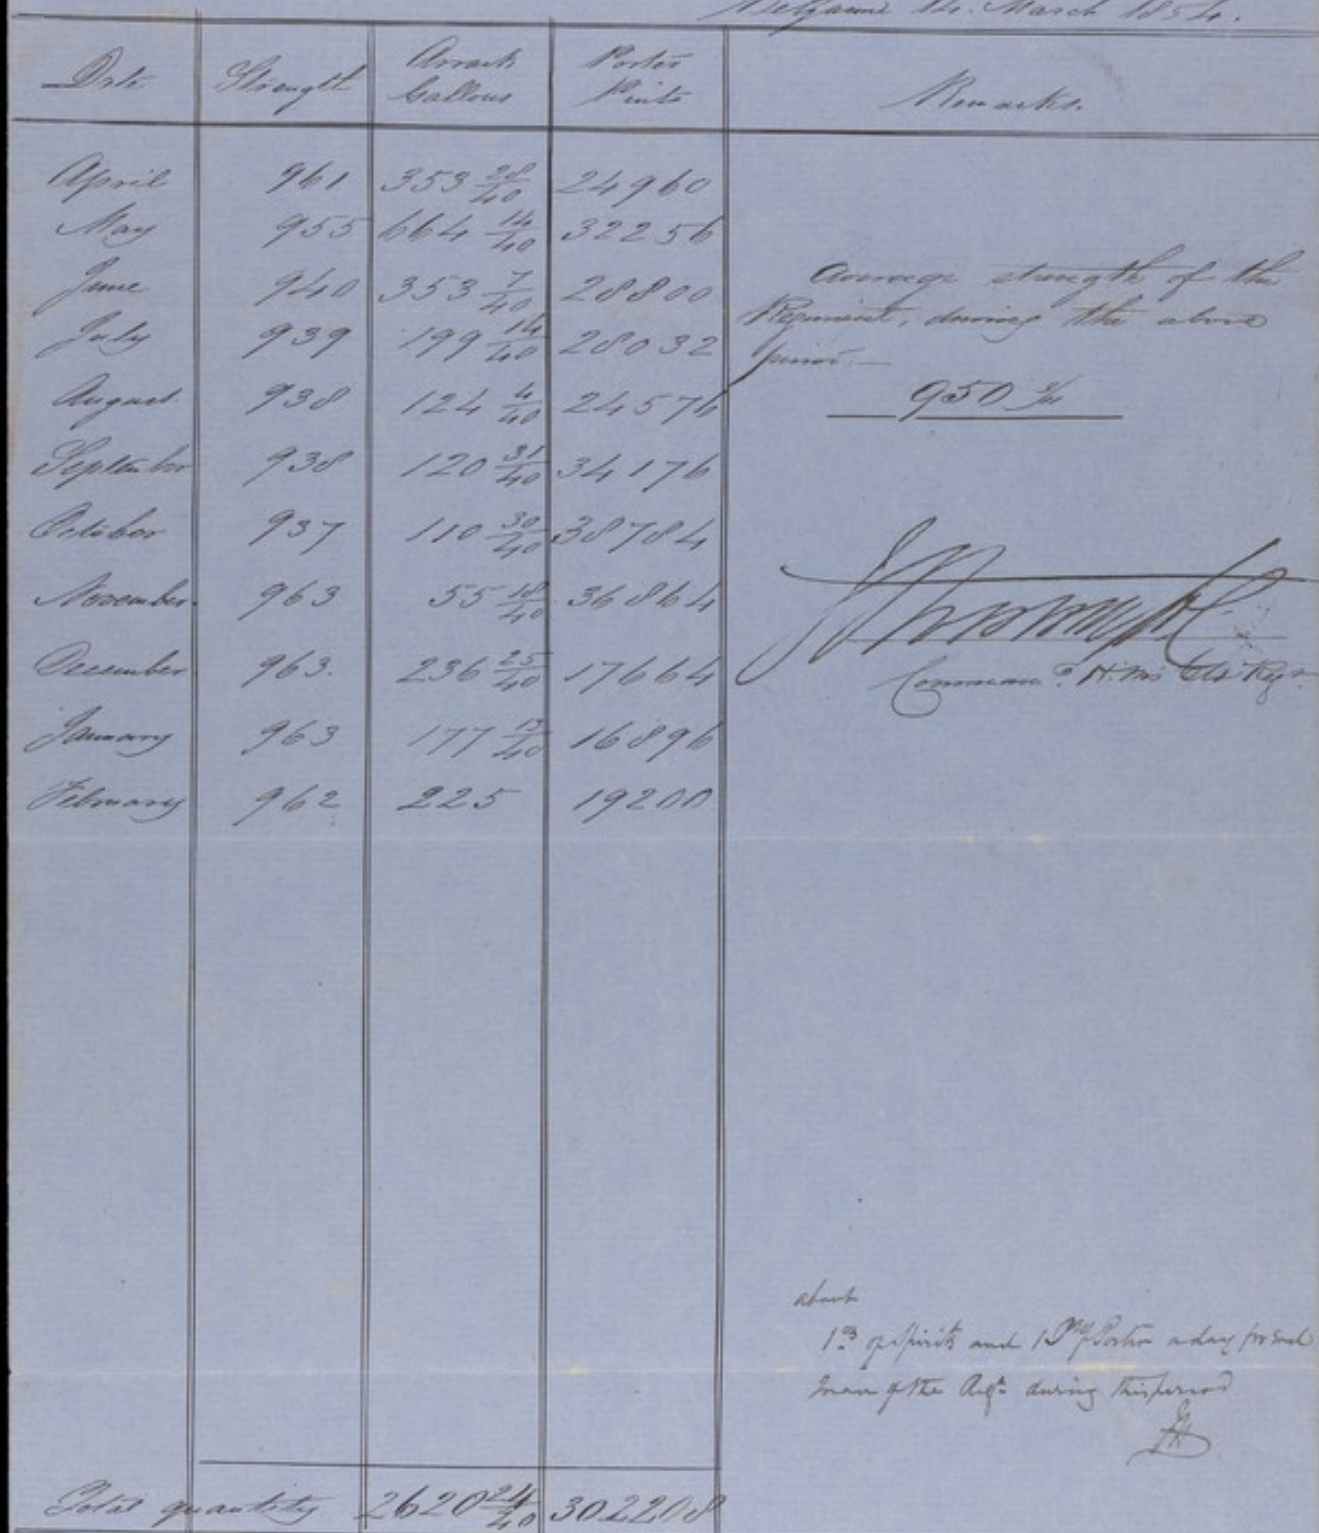 Belgaum 14. March 1854.
Date Strength Arrack Gallons Porter Pints Remarks.
April 961 353 28/40 24960
May 955 664 14/40 32256
June 940 353 7/40 28800
July 939 199 14/40 28032
August 938 124 4/40 24576
September 938 120 31/40 34176
October 937 110 30/40 38784
November 963 55 18/40 36864
December 963. 236 25/40 17664
January 963 177 13/40 16896
February 962 225 19200
Average strength of the
Regiment, during the above
period.—
950 9/11
H. M's Regt
about
1 oz of Spirits and 1 Pt of Porter a day for each
man of the Regt. during this period
JH
Total quantity 2620 24/40 302208